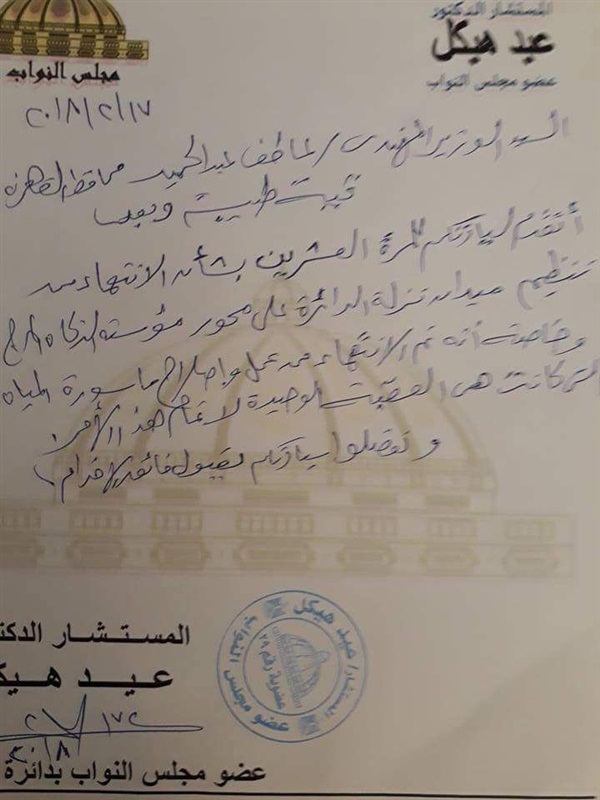 المستشار الدكتور
عيد هيكل
عضو مجلس النواب
مجلس النواب
٢٠١٨/٢/١٧
السيد الوزير المهندس / عاطف عبد الحميد محافظ القاهرة
تحية طيبة وبعد
أتقدم لسيادتكم للمرة العشرين بشأن الانتهاء من
تنظيم ميدان نزلة الدائرى على محور مؤسسة الزكاه المرج
وخاصة أنه تم الانتهاء من عمل وإصلاح ماسورة المياه
التى كانت هى العقبة الوحيدة لاتمام هذا الأمر
وتفضلوا سيادتكم بقبول فائق الاحترام
المستشار / عيد هيكل
عضوية رقم ٢٨
عضو مجلس النواب
المستشار الدكت
عيد هيك
٢٠١٨
عضو مجلس النواب بدائرة